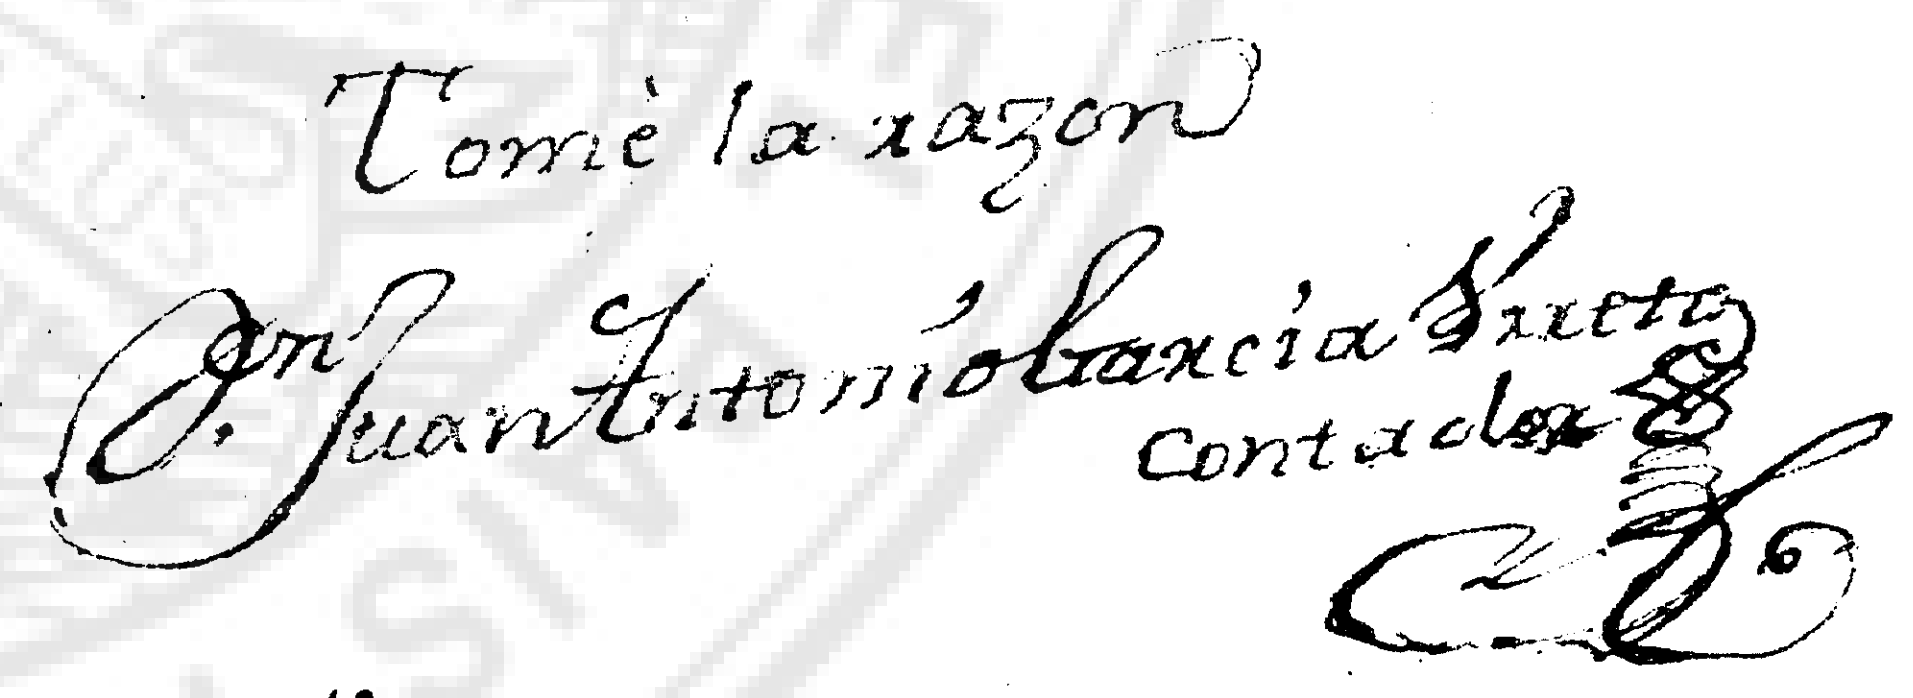 Tomè la razon
Dn. Juan Antonio Garcia
Contador